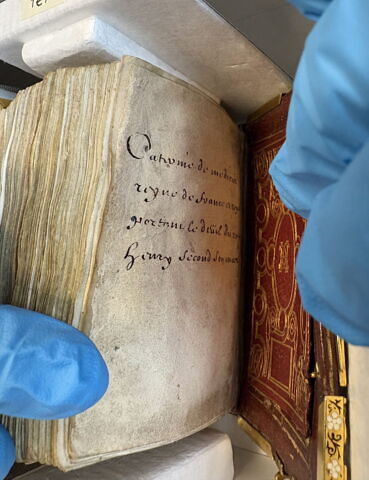 Catyrine de medicis
reyne de france
portant le deuil du roy
Henry second son mary